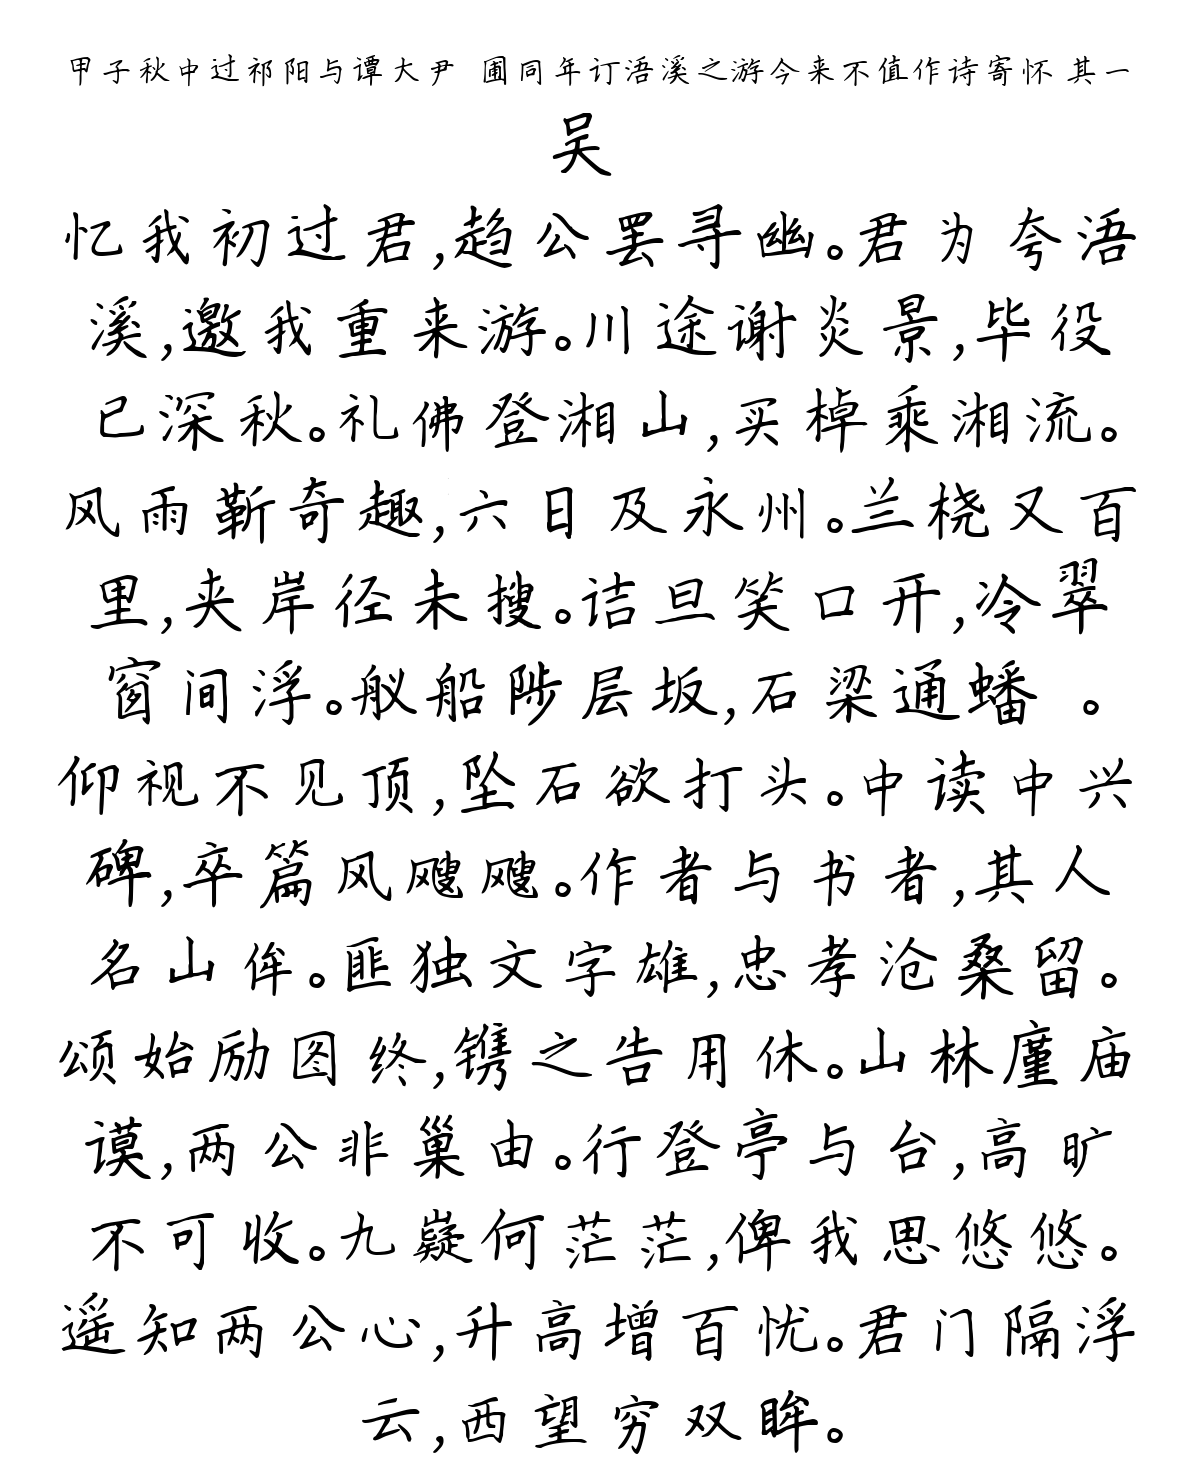 甲子秋中过祁阳与谭大尹 圃同年订浯溪之游今来不值作诗寄怀 其一
吴
忆我初过君,趋公罢寻幽。君为夸浯
溪,邀我重来游。川途谢炎景,毕役
已深秋。礼佛登湘山,买棹乘湘流。
风雨靳奇趣,六日及永州。兰桡又百
里,夹岸径未搜。诘旦笑口开,冷翠
窗间浮。舣船陟层坂,石梁通蟠 。
仰视不见顶,坠石欲打头。中读中兴
碑,卒篇风飕飕。作者与书者,其人
名山侔。匪独文字雄,忠孝沧桑留。
颂始励图终,镌之告用休。山林廑庙
谟,两公非巢由。行登亭与台,高旷
不可收。九嶷何茫茫,俾我思悠悠。
遥知两公心,升高增百忧。君门隔浮
云,西望穷双眸。